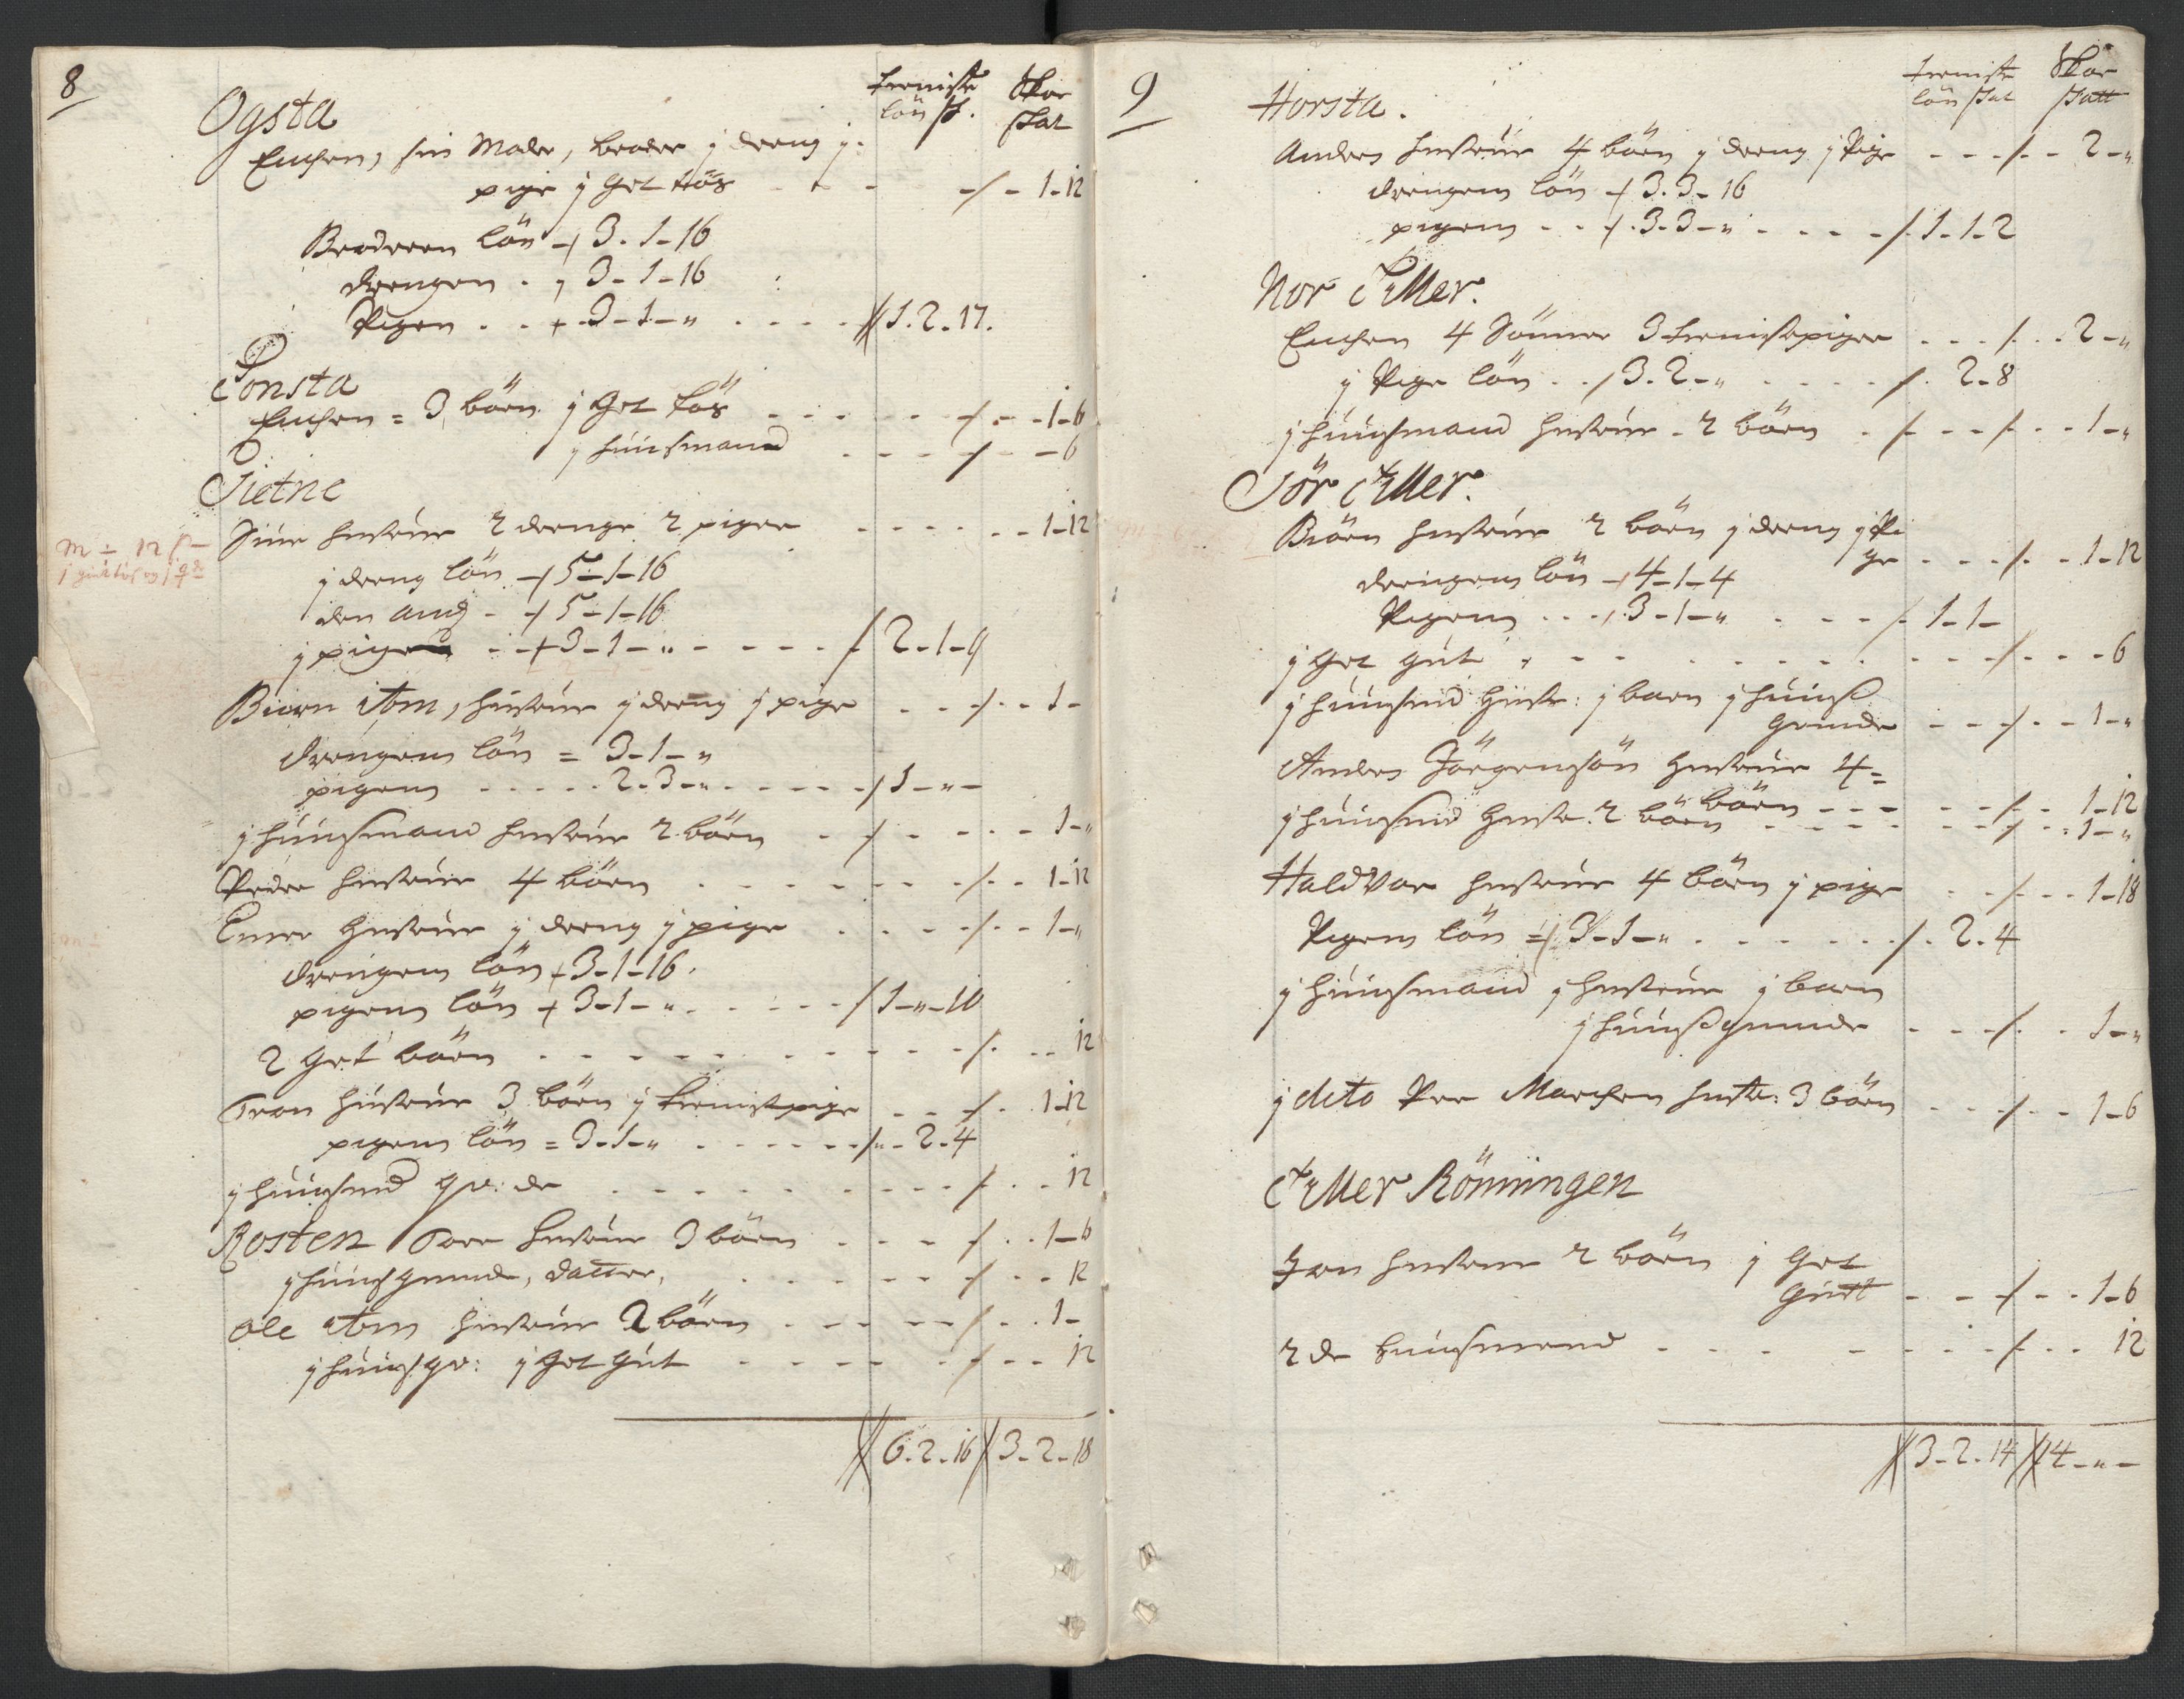 8
tieniste Skoe
löns st. skat
Ogsta
Enchen, sin Moder, broder j dreng j
pige j Get tös - - - / - 1-12
Broderen lön - 3-1-16
drengen - 3-1-16
Pigen - - 3-1-" - - - - 1.2.17.
Tonsta
Enchen = 3 börn j Get tös - - - - - / - - 1-6
j huusmand - - - - / - - 6
Tietne
hustrue 2 drenge 2 piger - - - - - - 1-12
j dreng lön - 5-1-16
den and - 5-1-16
j pige - - 3-1-" - - - - / 2-1-
Biörn ibm, hustrue j dreng j pige - - / - - 1-
drengens lön = 3-1-"
pigens - - - - - 2-3-" - - - - / 1-"-
j huusmand hustrue 2 börn - / - - - - 1-"
Peder hustrue 4 börn - - - - - - - / - - 1-12
hustrue j dreng j pige - - - - / - - 1-"
drengens lön 3-1-16.
pigens lön 3-1-" - - - - - / 1-"-10
2 Get börn - - - - - - - - - / - - 12
Tron hustrue 3 börn j tienistpige - - - / - - 1-12
pigens lön = 3-1-" - - - - - - / - - 2-4
j huusmd - - - - - - - - - / - - 12
Rosten Tore hustrue 3 börn - - - - / - - 1-6
j huusqvinde, datter, - - - - - - / - - 12
Ole ibm hustrue 2 börn - - - - - / - - 1-
j huusqv: j Get gut - - - - - / - - 12
6.2.16 3-2-18
9
tieniste Skoe
löns skat skatt
Horsta.
Anders hustrue 4 börn j dreng j Pige - - - / - - 2-"
drengens lön - 3.3-16
pigens - - 3.3-" - - - - / 1-1-2
Nor Tiller.
Enchen 4 Sönner 3 tienistepiger - - - / - - 2-"
j Pige lön - - 3.2-" - - - - / . 2-8
j huusmand hustrue - 2 börn - / - - - / - - 1-"
Sör Tiller.
Biörn hustrue 2 börn j dreng j Pi
ge - - - / - - 1-12
drengens lön - 4-1-4
Pigens - - - 3-1-" - - - / 1-1-
j Get gut - - - - - - - - - / - - - 6
j huusmd hustr: j barn j huus
qvinde - - - / - - 1-"
Anders Jörgensön hustrue 4=
börn - - - - - / - - 1-12
j huusmd hustr. 2 börn - - - - - - - / - - 1-"
Haldvor hustrue 4 börn j pige - - / - - - 1-18
Pigens lön = 3-1-" - - - - - - / . 2.4
j huusmand j hustrue j barn
j huusqvinde - - - / - - 1-"
j dito Per hustr: 3 börn - - - / - - 1-6
Tiller Rönningen
Jon hustrue 2 börn j Get
gutt - - - / - - 1-6
2 de huusmend - - - - - - - / - - 12
3-2-14 4-"-